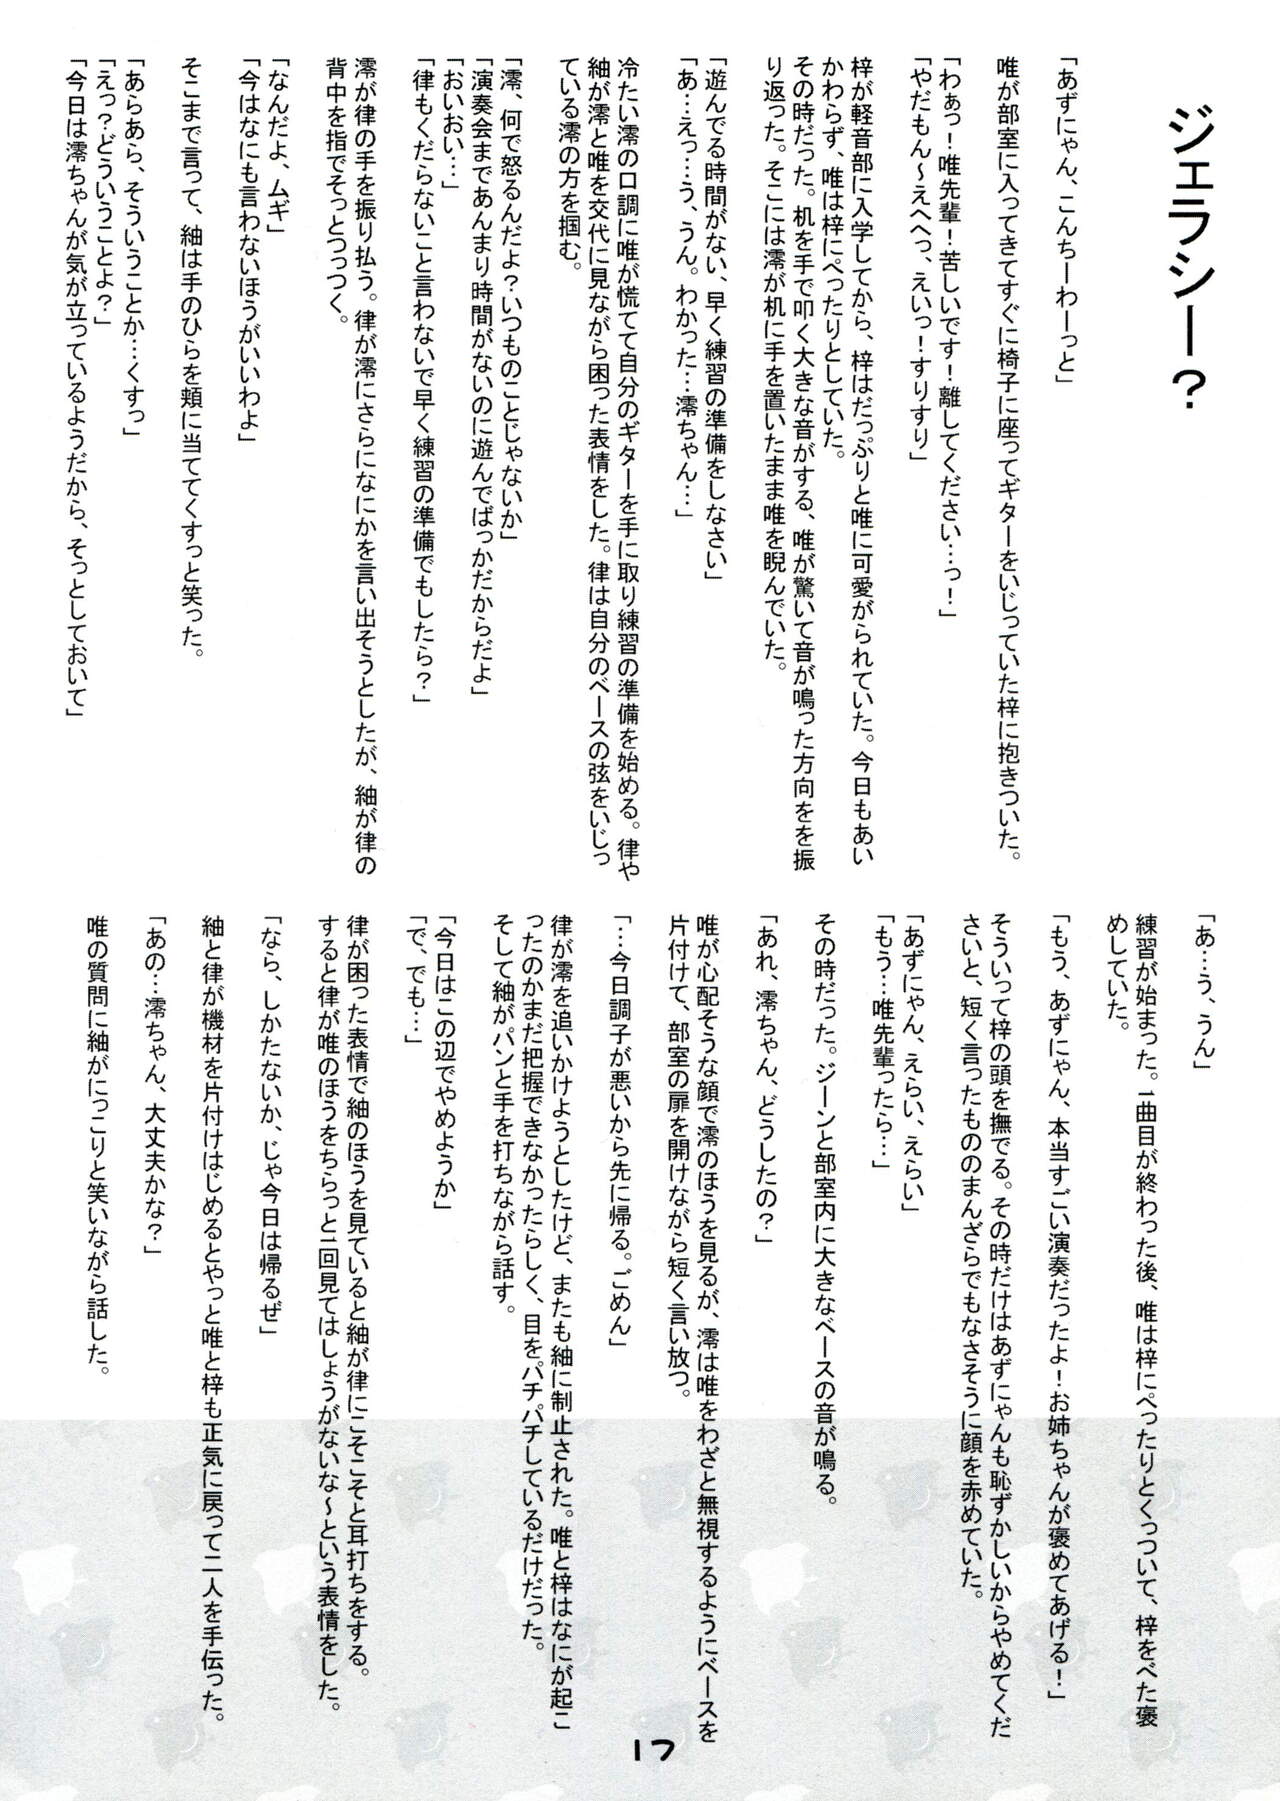 ジェラシー？
「あずにゃん、こんちーわーっと」
唯が部室に入ってきてすぐに椅子に座ってギターをいじっていた梓に抱きついた。
「わぁっ！唯先輩！苦しいです！離してください…っ！」
「やだもん～えへへっ、えいっ！すりすり」
梓が軽音部に入学してから、梓はだっぷりと唯に可愛がられていた。今日もあい
かわらず、唯は梓にぺったりとしていた。
その時だった。机を手で叩く大きな音がする、唯が驚いて音が鳴った方向をを振
り返った。そこには澪が机に手を置いたまま唯を睨んでいた。
「遊んでる時間がない、早く練習の準備をしなさい」
「あ…えっ…う、うん。わかった…澪ちゃん…」
冷たい澪の口調に唯が慌てて自分のギターを手に取り練習の準備を始める。律や
紬が澪と唯を交代に見ながら困った表情をした。律は自分のベースの弦をいじっ
ている澪の方を掴む。
「澪、何で怒るんだよ？いつものことじゃないか」
「演奏会まであんまり時間がないのに遊んでばっかだからだよ」
「おいおい…」
「律もくだらないこと言わないで早く練習の準備でもしたら？」
澪が律の手を振り払う。律が澪にさらになにかを言い出そうとしたが、紬が律の
背中を指でそっとつっつく。
「なんだよ、ムギ」
「今はなにも言わないほうがいいわよ」
そこまで言って、紬は手のひらを頬に当ててくすっと笑った。
「あらあら、そういうことか…くすっ」
「えっ？どういうことよ？」
「今日は澪ちゃんが気が立っているようだから、そっとしておいて」
「あ…う、うん」
練習が始まった。一曲目が終わった後、唯は梓にぺったりとくっついて、梓をべた褒
めしていた。
「もう、あずにゃん、本当すごい演奏だったよ！お姉ちゃんが褒めてあげる！」
そういって梓の頭を撫でる。その時だけはあずにゃんも恥ずかしいからやめてくだ
さいと、短く言ったもののまんざらでもなさそうに顔を赤めていた。
「あずにゃん、えらい、えらい」
「もう…唯先輩ったら…」
その時だった。ジーンと部室内に大きなベースの音が鳴る。
「あれ、澪ちゃん、どうしたの？」
唯が心配そうな顔で澪のほうを見るが、澪は唯をわざと無視するようにベースを
片付けて、部室の扉を開けながら短く言い放つ。
「…今日調子が悪いから先に帰る。ごめん」
律が澪を追いかけようとしたけど、またも紬に制止された。唯と梓はなにが起こ
ったのかまだ把握できなかったらしく、目をパチパチしているだけだった。
そして紬がパンと手を打ちながら話す。
「今日はこの辺でやめようか」
「で、でも…」
律が困った表情で紬のほうを見ていると紬が律にこそこそと耳打ちをする。
すると律が唯のほうをちらっと一回見てはしょうがないな～という表情をした。
「なら、しかたないか、じゃ今日は帰るぜ」
紬と律が機材を片付けはじめるとやっと唯と梓も正気に戻って二人を手伝った。
「あの…澪ちゃん、大丈夫かな？」
唯の質問に紬がにっこりと笑いながら話した。
17